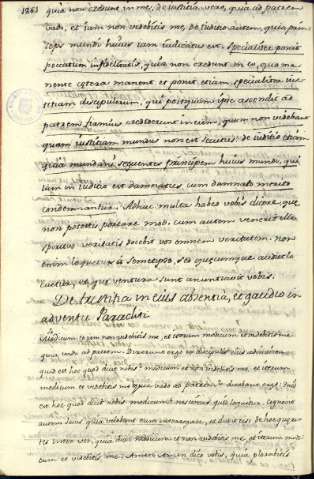 1261
quia non credunt in me, de iustitia vero, quia ad patrem
vado, et iam non videbitis me, de iuditio autem, quia prin
ceps mundi huius iam iudicatus est. specialiter ponit
peccatum infidelitatis, quia non credunt in eo, qua ma
nente cetera manent et ponit etiam, specialiter ius
titiam discipulorum, qui postquam ipse ascendit ad
patrem firmius crediderunt in eum, quem non videbant
quam iustitiam mundus non est secutus. de iuditio etiam
quia mundani sequentes principem huius mundi, qui
iam iuditio est damnatus, cum damnato merito
condemnantur. Adhuc multa habeo vobis dicere, que
non potestis portare modo. cum autem venerit ille
spiritus veritatis docebit vos omnem veritatem. non
enim loquetur a semetipso, sed quecumque audiet lo
quetur, et que ventura sunt annuntiabit vobis.
De tristitia in eius absentia, et gaudio in
adventu Paracliti
Modicum et iam non videbitis me, et iterum modicum et videbitis me
quia vado ad patrem. Dixerunt ergo ex discipulis eius ad invicem
quid est hoc quod dicit nobis modicum et non videbitis me, et iterum
modicum et videbitis me, quia vado ad patrem. dicebant ergo. quid
est hoc quod dicit nobis modicum nescimus quid loquitur. Cognovit
autem Iesus quia volebant eum interrogare, et dixit eis. de hoc queri
tis inter vos, quia dixi modicum et non videbitis me, et iterum modi
cum et videbitis me. Amen Amen dico vobis, quia plorabitis